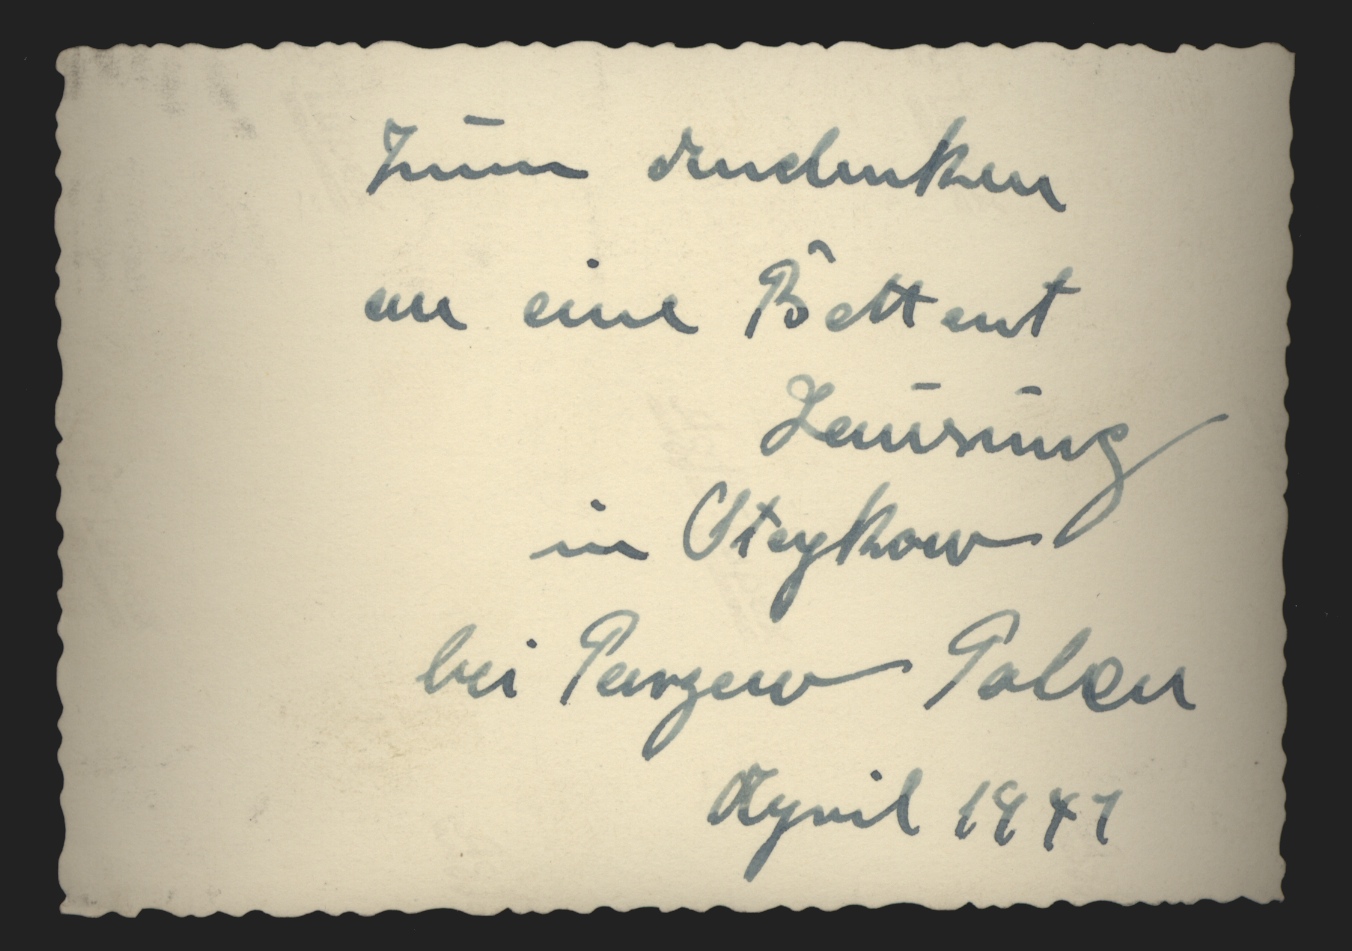 Zum Andenken
an eine Bettent
Lausung
in Steykow
bei Parzew Polen
April 1941